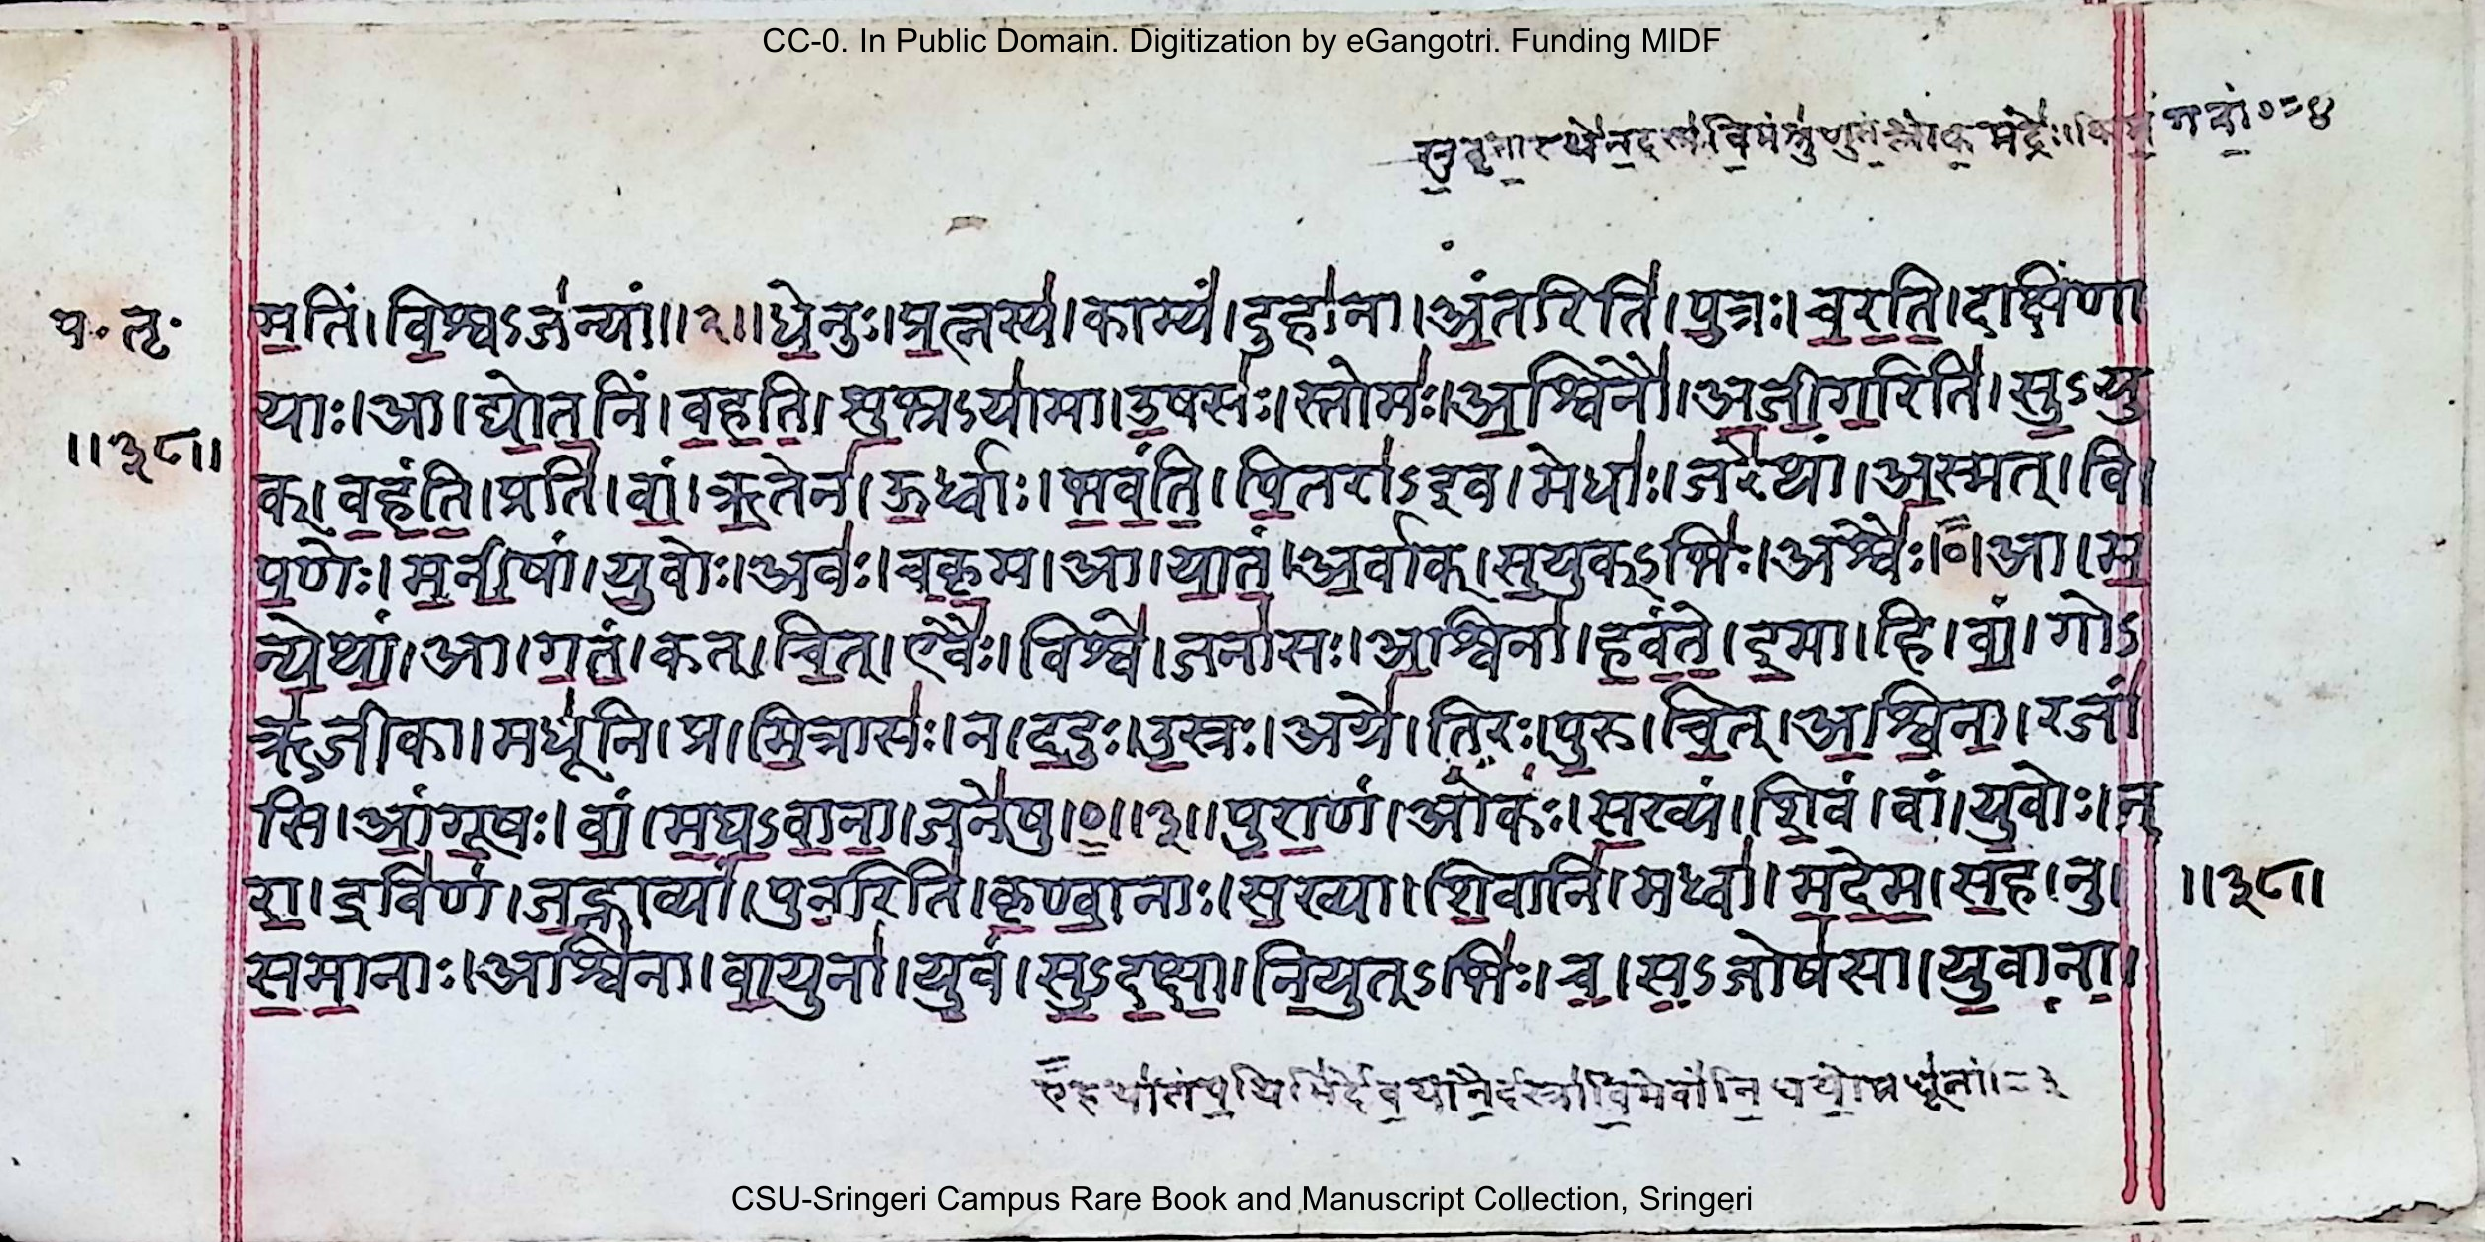 CC-0. In Public Domain. Digitization by eGangotri. Funding MIDF
म॒तिं। वि॒श्वऽज॑न्यां॥२॥धे॒नुः।प्र॒त्नस्य॑।काम्यं॑।दुहा॑ना।अं॒तरिति॑।पु॒त्रः।च॒र॒ति॒।दक्षि॑णा
याः।आ।द्यो॒त॒निं।व॒ह॒ति॒।शु॒भ्रऽया॑मा।उ॒षसः॑।स्तोमः॑।अ॒श्विनौ॑।अ॒जी॒ग॒रिति॑।सु॒ऽयु
क्।व॒हं॒ति॒।प्रति॑।वां॒।ऋ॒तेन॑।ऊ॒र्ध्वाः।भ॒वं॒ति॒।पि॒तरा॑ऽइव।मेधाः॑।जरे॑थां।अ॒स्मत्।वि।
प॒णेः।म॒नी॒षां।यु॒वोः।अवः॑।च॒कृ॒म।आ।या॒तं॒।अ॒र्वाक्।सु॒युक्ऽभिः॑।अश्वैः॑।०।आ।म॒
न्ये॒थां॒।आ।ग॒तं॒।कत्।चि॒त्।एवैः॑।विश्वे॑।जना॑सः।अ॒श्विना॑।ह॒वं॒ते॒।इ॒मा।हि।वां॒।गोऽ
ऋ॑जीका।मधू॑नि।प्र।मि॒त्रासः॑।न।द॒दुः।उ॒स्रः।अग्रे॑।ति॒रः।पु॒रु।चि॒त्।अ॒श्वि॒ना॒।रजां॑
सि।आं॒गू॒षः।वां॒।म॒घ॒ऽवा॒ना॒।जने॑षु।०॥३॥पु॒रा॒णं।ओकः॑।स॒ख्यं।शि॒वं।वां॒।यु॒वोः।न॒
रा॒।द्रवि॑णं।ज॒ह्नाव्यां॑।पुन॒रिति॑।कृ॒ण्वा॒नाः।स॒ख्या।शि॒वानि॑।मध्वा॑।म॒दे॒म॒।स॒ह।नु।
स॒मा॒नाः।अश्वि॑ना।वा॒युना॑।यु॒वं।सु॒ऽद॒क्षा॒।नि॒युत्ऽभिः॑।च॒।स॒ऽजोष॑सा।यु॒वा॒ना॒।
प॰तृ॰
॥३८॥
॥३८॥
CSU-Sringeri Campus Rare Book and Manuscript Collection, Sringeri